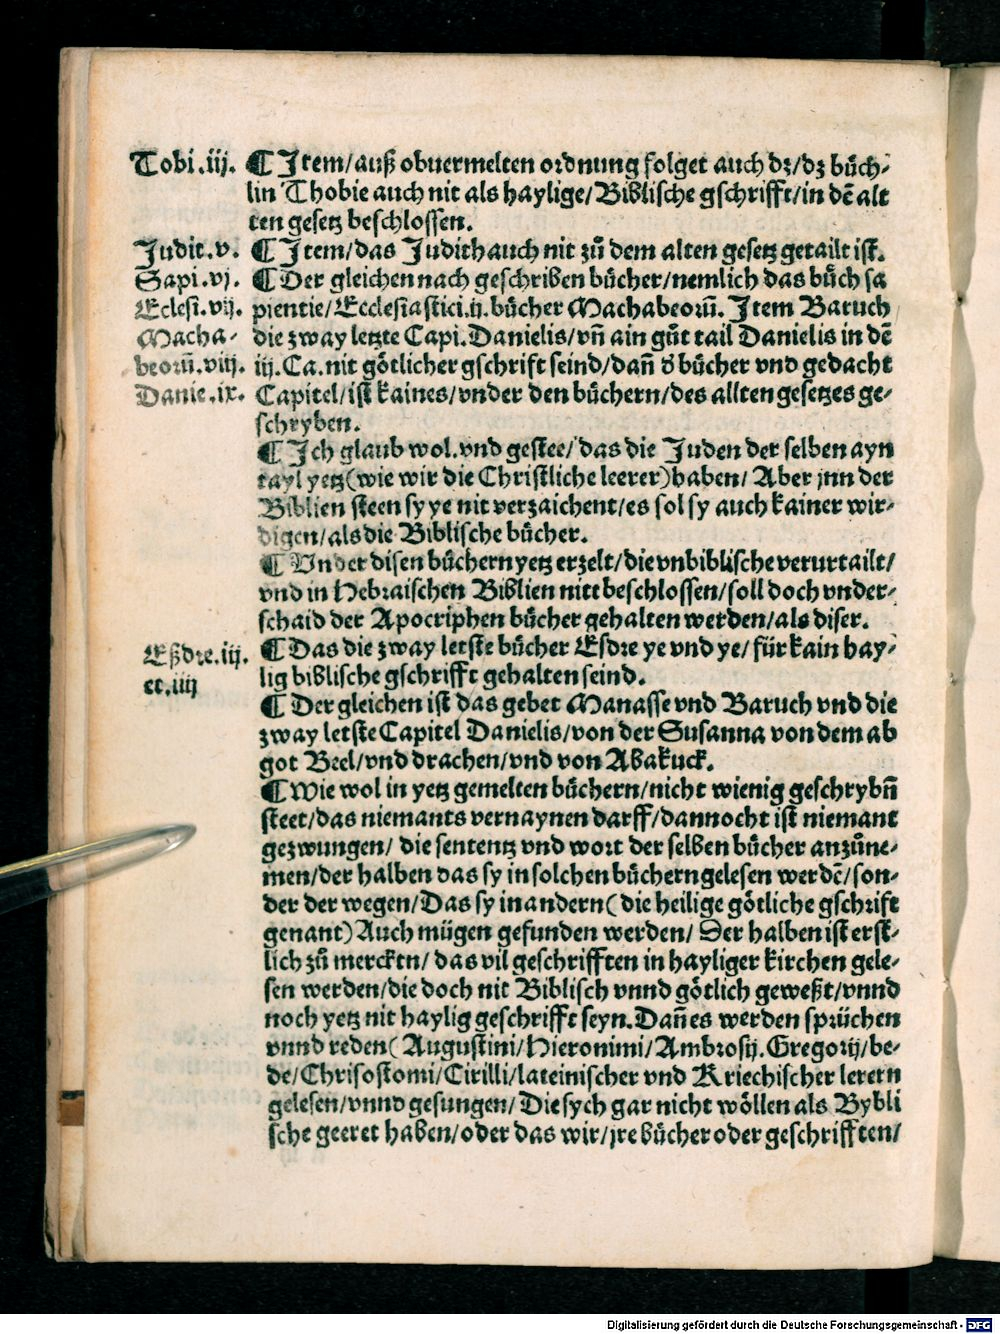 Tobi.iij. ¶ Item/auß obuermelten ordnung folget auch dz/dz buͤ́ch-
lin Thobie auch nit als haylige/Biblische gschrifft/in dē alt
ten gesetz beschlossen.
Judit.v. ¶ Item/das Judith auch nit zů dem alten gesetz getailt ist.
Sapi.vj. ¶ Der gleichen nach geschriben bücher/nemlich das bůch sa
Eclesi.vij. pientie/Ecclesiastici.ij.bücher Machabeorū. Item Baruch
Macha- die zway letzte Capi.Danielis/vn̄ ain gůt tail Danielis in dē
beorū.viij. iij.Ca.nit götlicher gschrift seind/dan̄ d̕ bücher vnd gedacht
Danie.ix. Capitel/ist kaines/vnder den büchern/des allten gesetzes ge-
schryben.
¶ Ich glaub wol.vnd gestee/das die Juden der selben ayn
tayl yetz(wie wir die Christliche leerer)haben/ Aber jnn der
Biblien steen sy ye nit verzaichent/es sol sy auch kainer wir-
digen/als die Biblische bücher.
¶ Vnder disen büchern yetz erzelt/die vnbiblische verurtailt/
vnd in Hebraischen Biblien nitt beschlossen/soll doch vnder-
schaid der Apocriphen bücher gehalten werden/als diser.
Eßdre.iij. ¶ Das die zway letste bücher Esdre ye vnd ye/für kain hay-
et.iiij lig biblische gschrifft gehalten seind.
¶ Der gleichen ist das gebet Manasse vnd Baruch vnd die
zway letste Capitel Danielis/von der Susanna von dem ab
got Beel/vnd drachen/vnd von Abakuck.
¶ Wie wol in yetz gemelten büchern/nicht wienig geschrybn̄
steet/das niemants vernaynen darff/dannocht ist niemant
gezwungen/ die sententz vnd wort der selben bücher anzůne-
men/der halben das sy in solchen büchern gelesen werdē/son-
der der wegen/Das sy in andern(die heilige götliche gschrift
genant)Auch mügen gefunden werden/ Der halben ist erst-
lich zů mercktn/ das vil geschrifften in hayliger kirchen gele-
sen werden/die doch nit Biblisch vnnd götlich geweßt/vnnd
noch yetz nit haylig geschrifft seyn.Dan̄ es werden sprüchen
vnnd reden(Augustini/Hieronimi/Ambrosij.Gregorij/be-
de/Chrisostomi/Cirilli/lateinischer vnd Kriechischer lerern
gelesen/vnnd gesungen/ Die sych gar nicht wöllen als Bybli
sche geeret haben/oder das wir/jre bücher oder geschrifften/
Digitalisierung gefördert durch die Deutsche Forschungsgemeinschaft - DFG